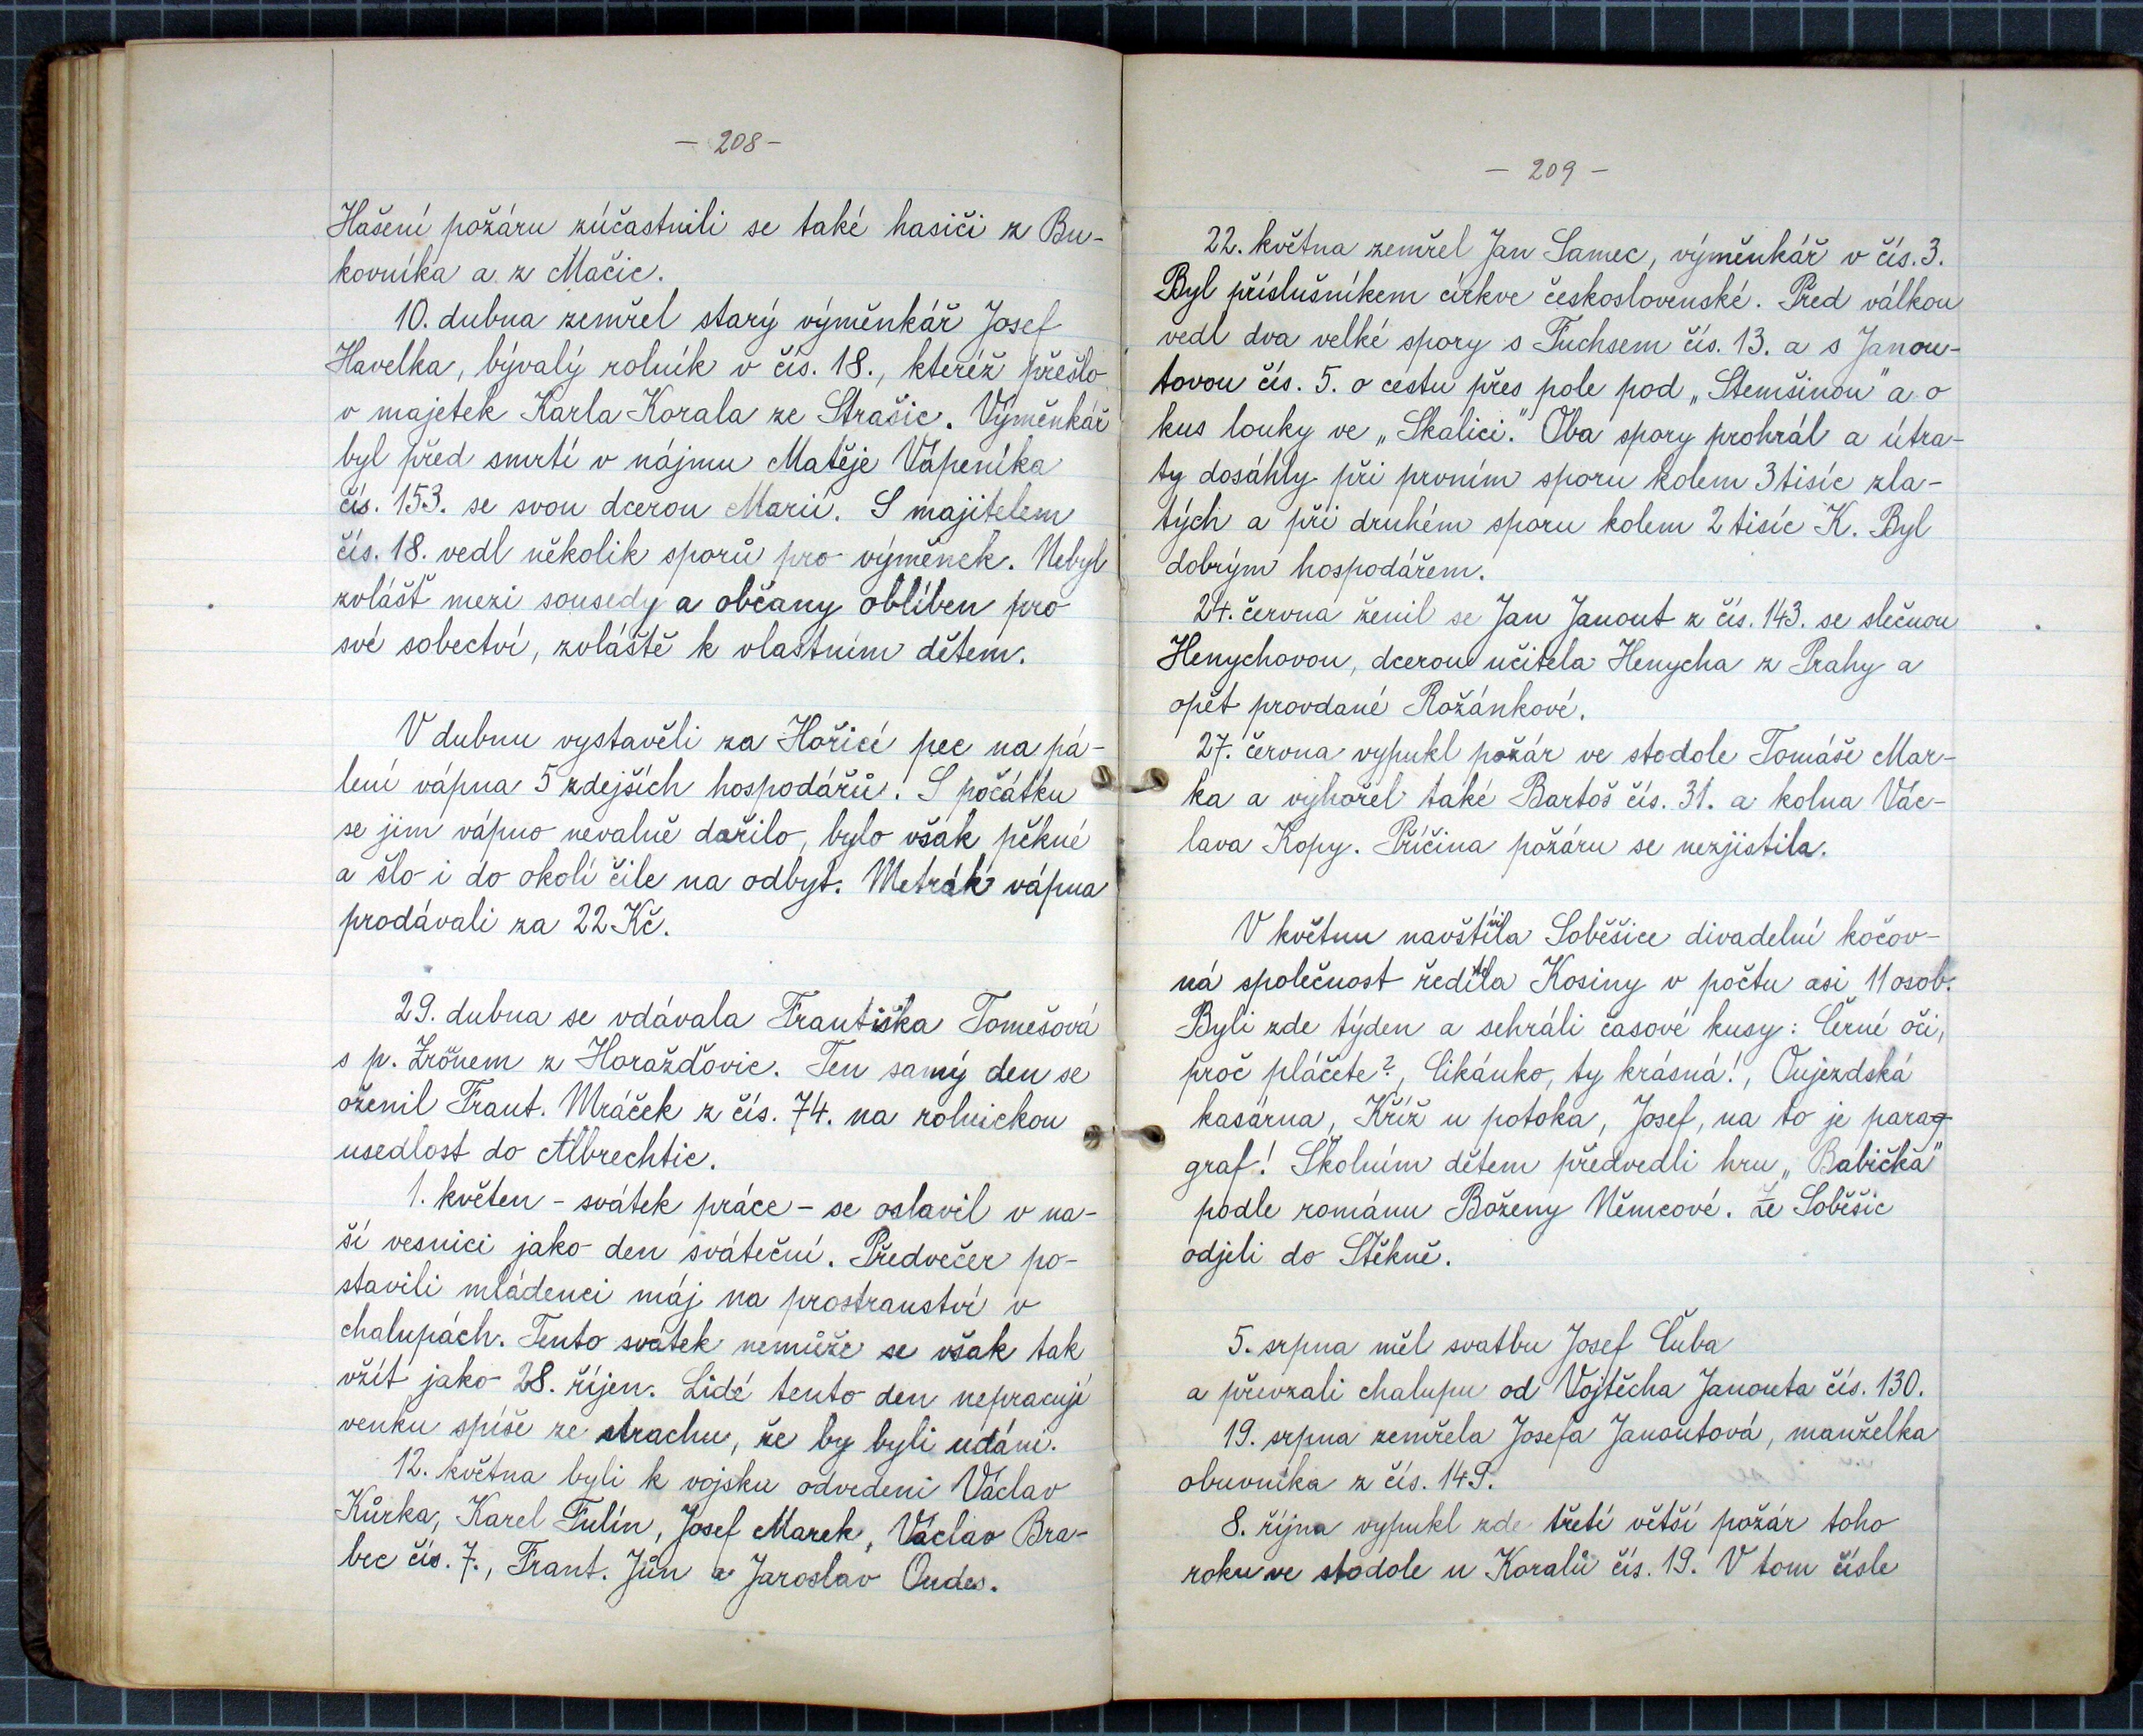 - 208 -
Hašení požáru zúčastnili se také hasiči z Bu-
kovníka a z Mačic.
10. dubna zemřel starý výměnkář Josef
Havelka, bývalý rolník v čís. 18., kteréž přešlo
v majetek Karla Korala ze Strašic. Výměnkář
byl před smrtí v nájmu Matěje Vápeníka
čís. 153. se svou dcerou Marií. S majitelem
čís. 18. vedl několik sporů pro výměnek. Nebyl
zvlášť mezi sousedy a občany oblíben pro
své sobectví, zvláště k vlastním dětem.
V dubnu vystavěli za Hořicí pec na pá-
lení vápna 5 zdejších hospodářů. S počátku
se jim vápno nevalně dařilo, bylo však pěkné
a šlo i do okolí čile na odbyt. Metrák vápna
prodávali za 22 Kč.
29. dubna se vdávala Františka Tomešová
s p. Zrönem z Horažďovic. Ten samý den se
oženil Frant. Mráček z čís. 74. na rolnickou
usedlost do Albrechtic.
1. květen - svátek práce - se oslavil v na-
ší vesnici jako den sváteční. Předvečer po-
stavili mládenci máj na prostranství v
chalupách. Tento svátek nemůže se však tak
vžít jako 28. říjen. Lidé tento den nepracují
venku spíše ze strachu, že by byli udáni.
12. května byli k vojsku odvedeni Václav
Kůrka, Karel Fulín, Josef Marek, Václav Bra-
bec čís. 7., Frant. Jůn a Jaroslav Oudes.
- 209 -
22. května zemřel Jan Samec, výměnkář v čís. 3.
Byl příslušníkem církve československé. Před válkou
vedl dva velké spory s Fuchsem čís. 13. a s Janou-
tovou čís. 5. o cestu přes pole pod „Stemšinou" a o
kus louky ve „Skalici." Oba spory prohrál a útra-
ty dosáhly při prvním sporu kolem 3 tisíc zla-
tých a při druhém sporu kolem 2 tisíc K. Byl
dobrým hospodářem.
24. června ženil se Jan Janout z čís. 143. se slečnou
Henychovou, dcerou učitela Henycha z Prahy a
opět provdané Rožánkové.
27. června vypukl požár ve stodole Tomáše Mar-
ka a vyhořel také Bartoš čís. 31. a kolna Vác-
lava Kopy. Příčina požáru se nezjistila.
V květnu navštívila Soběšice divadelní kočov-
ná společnost ředitela Kosiny v počtu asi 11 osob.
Byli zde týden a sehráli časové kusy: Černé oči,
proč pláčete?, Cikánko, ty krásná!, Oujezdská
kasárna, Kříž u potoka, Josef, na to je parag-
graf! Školním dětem předvedli hru „Babička"
podle románu Boženy Němcové. Ze Soběšic
odjeli do Štěkně.
5. srpna měl svatbu Josef Čuba
a převzali chalupu od Vojtěcha Janouta čís. 130.
19. srpna zemřela Josefa Janoutová, manželka
obuvníka z čís. 149.
8. října vypukl zde třetí větší požár toho
roku ve stodole u Koralů čís. 19. V tom čísle